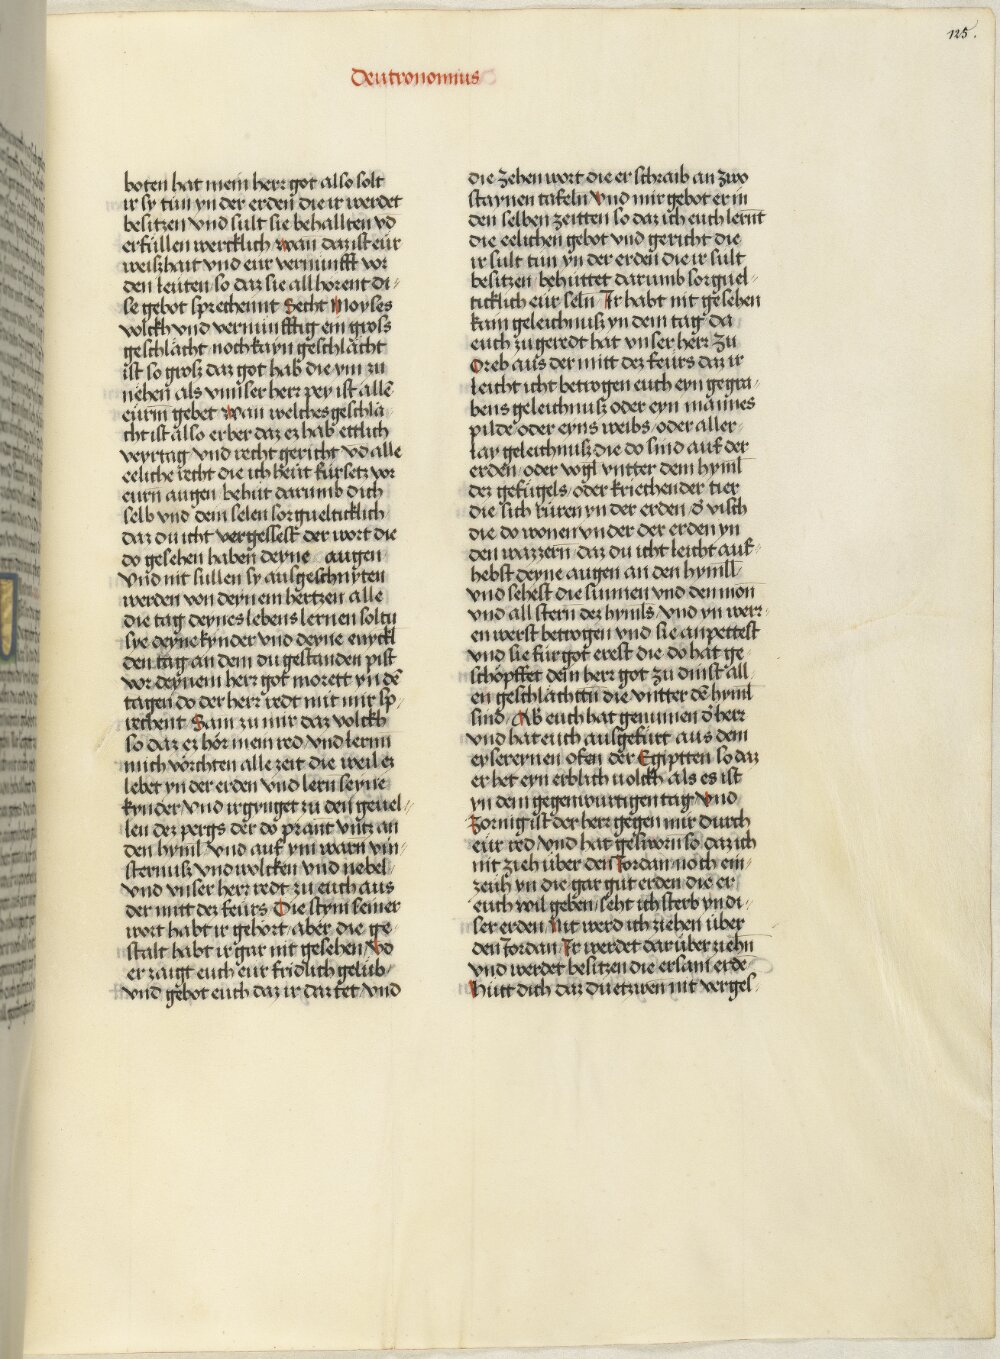 125.
Deutronomius
boten hat mein herr got also solt
ir sy tun yn der erden die ir werdet
besitzen vnd sult sie behallten vd
erfüllen wercklich wan daz ist eür
weißhait vnd eur vernunfft vor
den leuten so daz sie all horent di-
se gebot sprechennt Secht Moyses
volckh vnd vernunfftig ein gross
geschlächt noch kayn geschlächt
ist so groß daz got hab die ym zu
nehen als vnnser herr pey ist allē
eurm gebet wan welches geschlä-
cht ist also erber daz ez hab ettlich
veyrtag vnd recht gericht vd alle
eeliche recht die ich heut fürsetz vor
eurn augen behüt darumb dich
selb vnd dein selen sorguelticklich
daz du icht vergessest der wort die
do gesehen haben deyne augen
Vnd nit sullen sy ausgeschnyten
werden von deynem hertzen alle
die tag deynes lebens lernen soltu
sye deyne kynder vnd deyne enyckl
den tag an dem du gestanden pist
vor deynem herr got morett yn dē
tagen do der herr redt mit mir sp-
rechent Sam zu mir daz volckh
so daz ez hör mein red vnd lernn
mich vörchten alle zeit die weil ez
lebet yn der erden vnd lern seyne
kynder vnd ir gynget zu den geuel-
len dez pergs der do prant vntz an
den hyml vnd auf ym warn vin-
sternuß vnd wolcken vnd nebel
vnd vnser herr redt zu euch aus
der mitt dez feurs Die stym seiner
wort habt ir gehort aber die ge-
stalt habt ir gar nit gesehen Vd
er zaigt euch eur fridlich gelüb
vnd gebot euch daz ir daz tet vnd
die zehen wort die er schraib an zwo
staynen tafeln Vnd mir gebot er in
den selben zeitten so daz ich euch lernt
die eelichen gebot vnd gericht die
ir sult tun yn der erden die ir sult
besitzen behüttet darumb sorguel-
ticklich eür seln Ir habt nit gesehen
kain geleichnuß yn dem tag da
euch zu geredt hat vnser herr zu
Oreb aus der mitt dez feurs daz ir
leicht icht betrogen euch eyn gegra-
bens geleichnuß oder eyn mannes
pilde oder eyns weibs oder aller-
lay geleichnuß die do sind auf der
erden oder vogl vntter dem hyml
dez gefügels oder kriechender tier
die sich rüren yn der erden od visch
die do wonen vnder der erden yn
den wazzern daz du icht leicht auf-
hebst deyne augen an den hymll
vnd sehest die sunnen vnd den mon
vnd all stern dez hymls vnd yn werr-
en werst betrogen vnd sie anpettest
vnd sie für got erest die do hat ge-
schöpffet dein herr got zu dinst all-
en geschlächttn die vntter dē hyml
sind Ab euch hat genumen d herr
vnd hat euch ausgefürt aus dem
eysereynen ofen der Egiptten so daz
er het eyn erblich volckh als es ist
yn dem gegenwurtigen tag Vnd
zornig ist der herr gegen mir durch
eür red vnd hat gesworn so daz ich
nit zieh über den Jordan noch ein-
zeuh yn die gar gut erden die er
euch wil geben seht ich sterb yn di-
ser erden Nit werd ich ziehen über
den Jordan Ir werdet dar über ziehn
vnd werdet besitzen die ersam erde
Hütt dich daz du etzwen nit vergef-